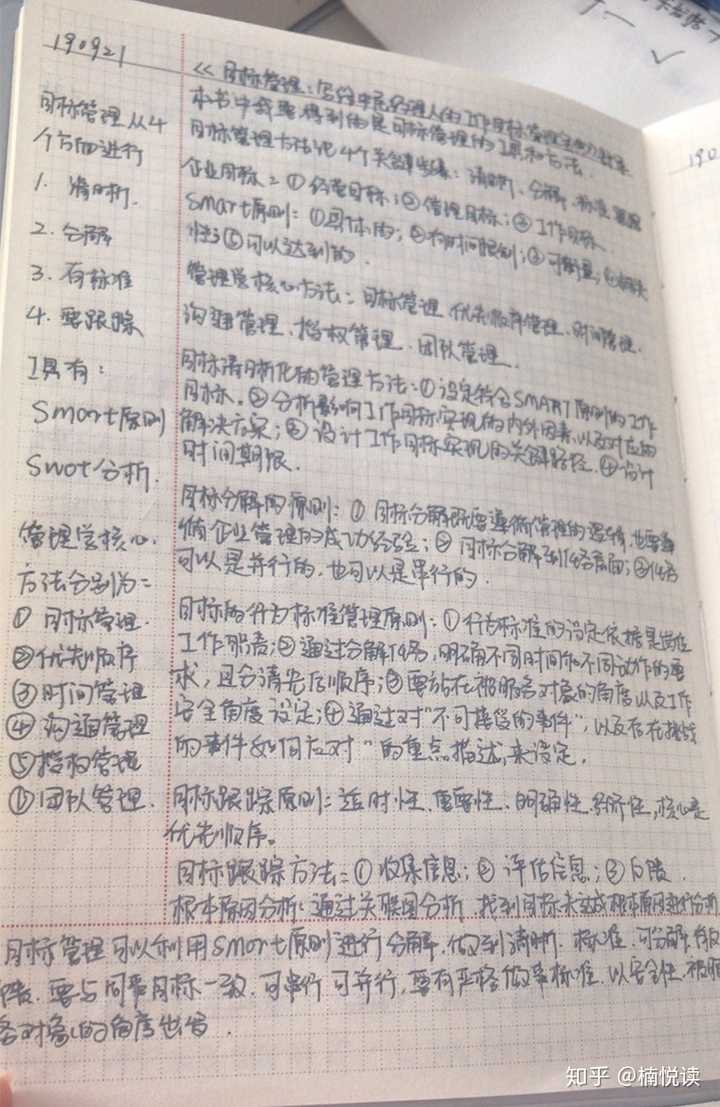 190921
目标管理从4
个方面进行
1. 清晰.
2. 分解
3. 有标准
4. 要跟踪
工具有:
Smart原则
Swot分析.
管理学核心
方法分别为:
① 目标管理.
②优先顺序
③时间管理
④沟通管理
⑤授权管理
⑥团队管理.
<<目标管理:写给中层经理人的工作目标管理
本书中我要得到的是目标管理的工具和方法.
目标管理方法论4个关键步骤:清晰、分解、标准、跟踪
企业目标:①经营目标;②管理目标;③工作目标.
Smart原则:①具体的;②有时间限制;③可衡量;④相关
性;⑤可以达到的.
管理学核心方法:目标管理.优先顺序管理.时间管理.
沟通管理、授权管理.团队管理.
目标清晰化的管理方法:①设定符合SMART原则的工作
目标.②分析影响工作目标实现的内外因素,以及对应的
解决方案;③设计工作目标实现的关键路径.④设计
时间期限.
目标分解的原则:①目标分解既要遵循管理的逻辑,也要遵
循企业管理的成功经验;②目标分解到任务层面;③任务
可以是并行的,也可以是串行的.
目标的行为标准管理原则:①行为标准的设定依据是岗位
工作职责;②通过分解任务,明确不同时间和不同动作的要
求,且分清先后顺序;③要站在被服务对象的角度以及工作
安全角度设定;④通过对"不可接受的事件",以及存在挑战
的事件如何应对"的重点描述,来设定.
目标跟踪原则:适时性.重要性、明确性.经济性,核心是
优先顺序。
目标跟踪方法:①收集信息;②评估信息;③反馈.
根本原因分析:通过关联图分析,找到目标未达成根本原因进行分析
目标管理可以利用Smart原则进行分解.做到清晰.标准.可分解.有反
馈.要与同事目标一致.可串行可并行,要有严格做事标准.以安全性.被服
务对象的角度出发.
知乎 @楠悦读